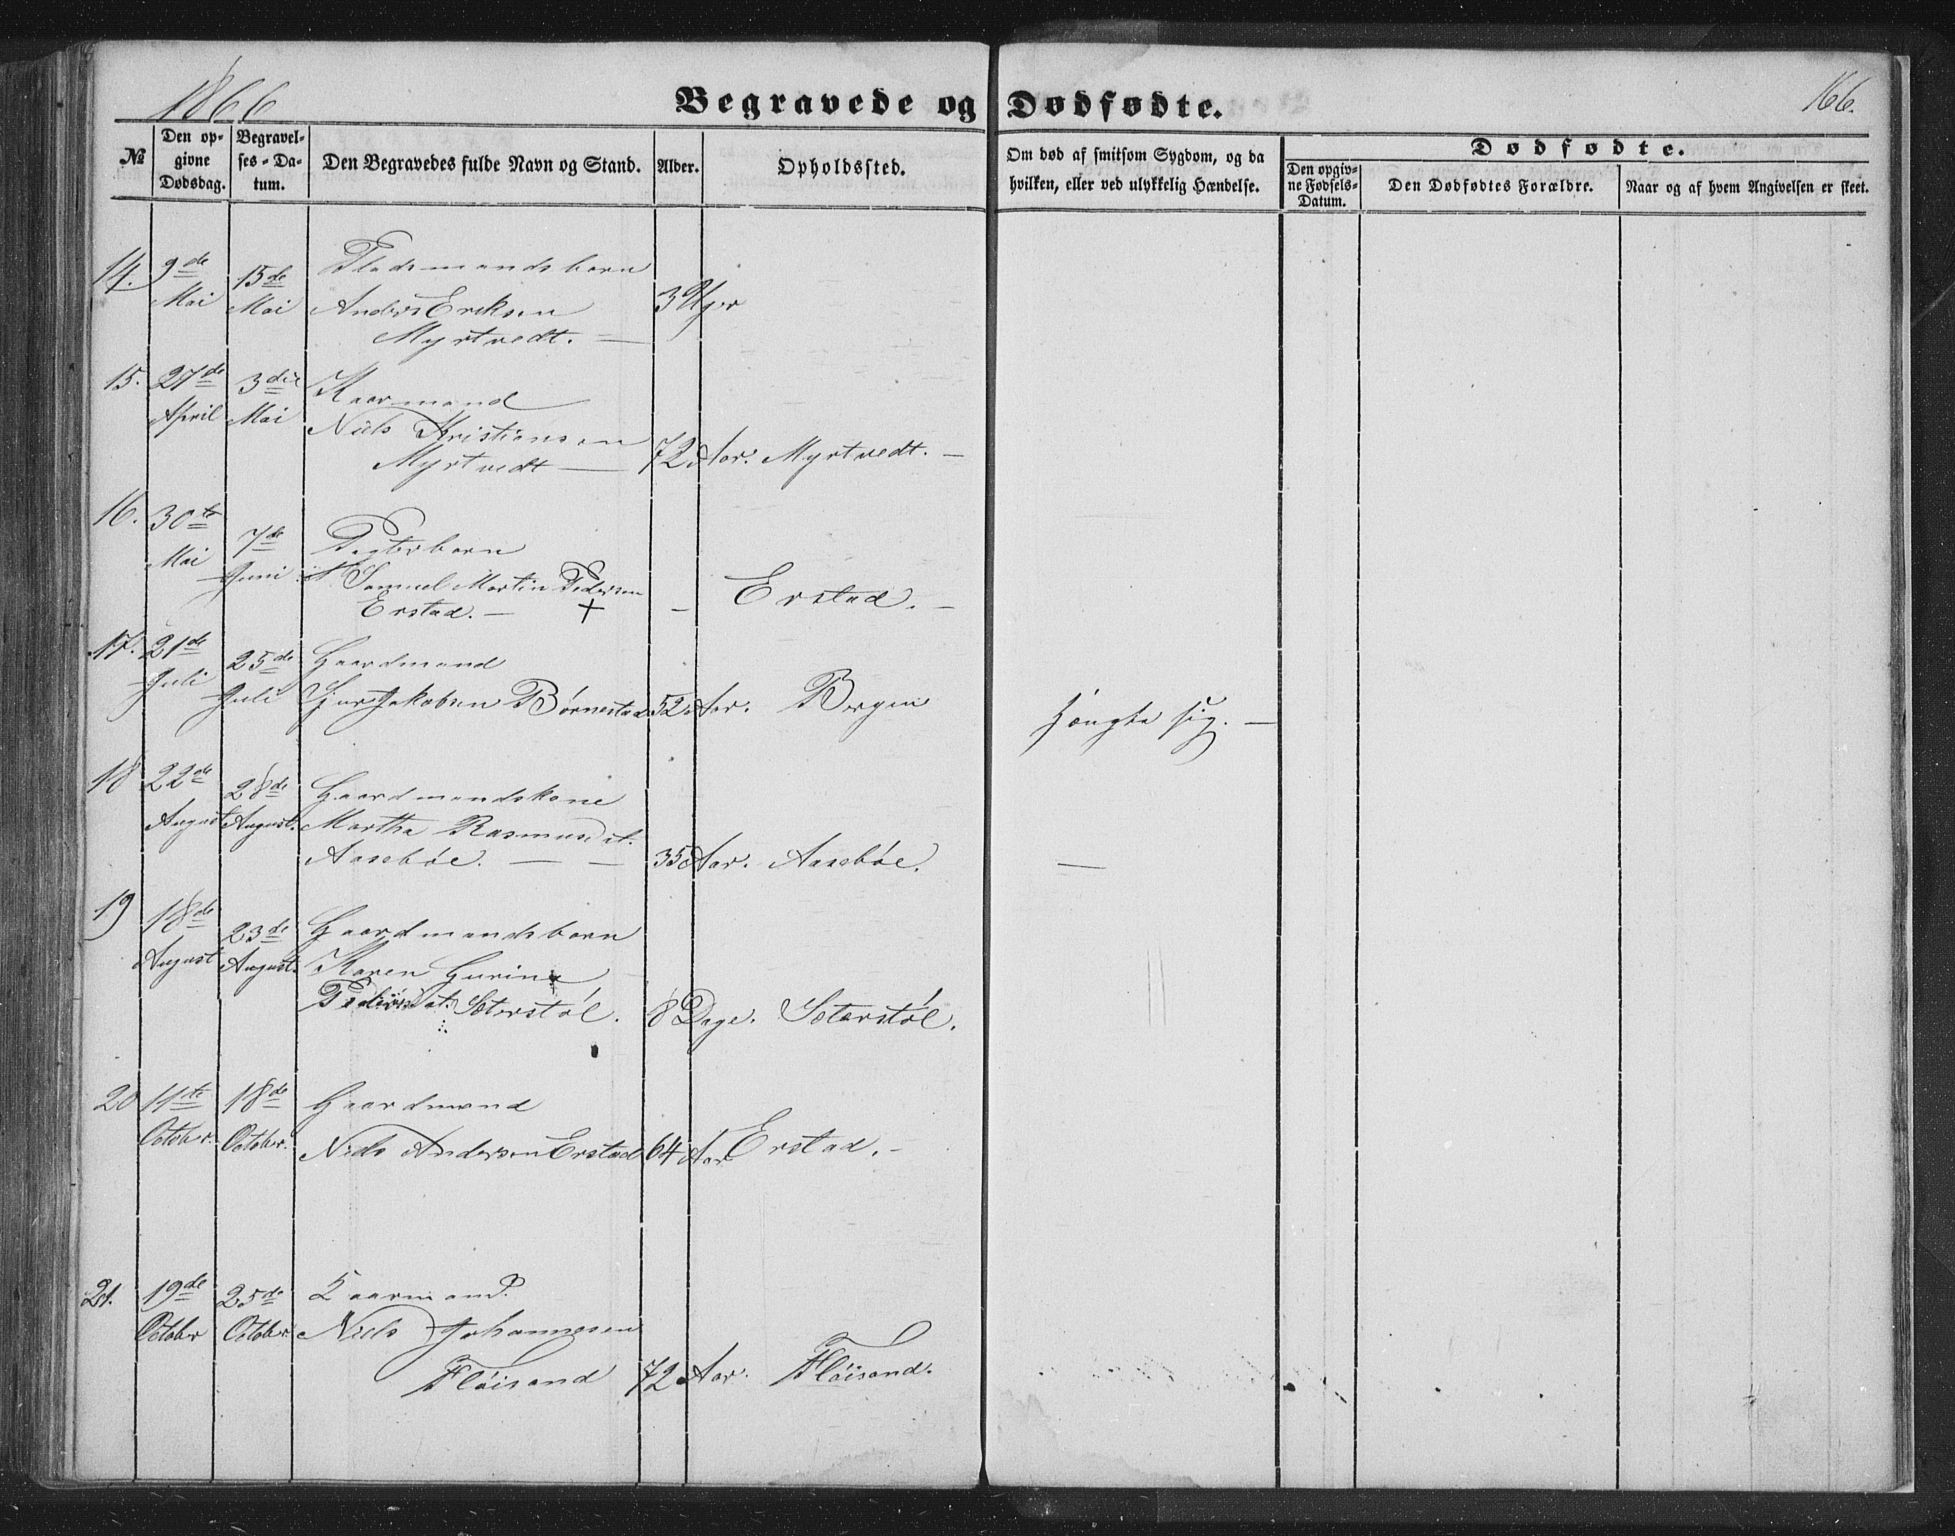 1866
Begravede og Dødfødte.
166.
№
Den op-
givne
Dødsdag.
Begravel-
ses-Da-
tum.
Den Begravedes fulde Navn og Stand.
Alder.
Opholdssted.
Om død af smitsom Sygdom, og da
hvilken, eller ved ulykkelig Hændelse.
Dødfødte.
Den opgiv-
ne Fødsels-
Datum.
Den Dødfødtes Forældre.
Naar og af hvem Angivelsen er skeet.
14. 9de 15de
Mai Mai Anders Eriksen 3 Uger
Myrtvedt. —
15. 27de 3die Kaarmand
April Mai Niels Kristiansen
Myrtvedt — 72 Aar. Myrtvedt. —
16. 30te 7de
Mai Juni Samuel Martin Pedersen
Erstad. — + — Erstad. —
17. 21de 25de Gaardmand
Juli Juli Sjur Jakobsen Børnestad 52 Aar. Bergen hængte sig. —
18 22de 28de Gaardmandskone
August August. Martha Rasmusdt.
Aasebøe. — — 35 Aar. Aasebøe. —
19 18de 23de Gaardmandsbarn
August August. Karen Gurine
Pedersdt. Sæterstøl. 8 Dage. Sæterstøl.
20 11te 18de Gaardmand
October. October. Niels Andersen Erstad 64 Aar Erstad. —
21. 19de 25de Kaarmand
October October Niels Johannesen
Fløisand 72 Aar. Fløisand.